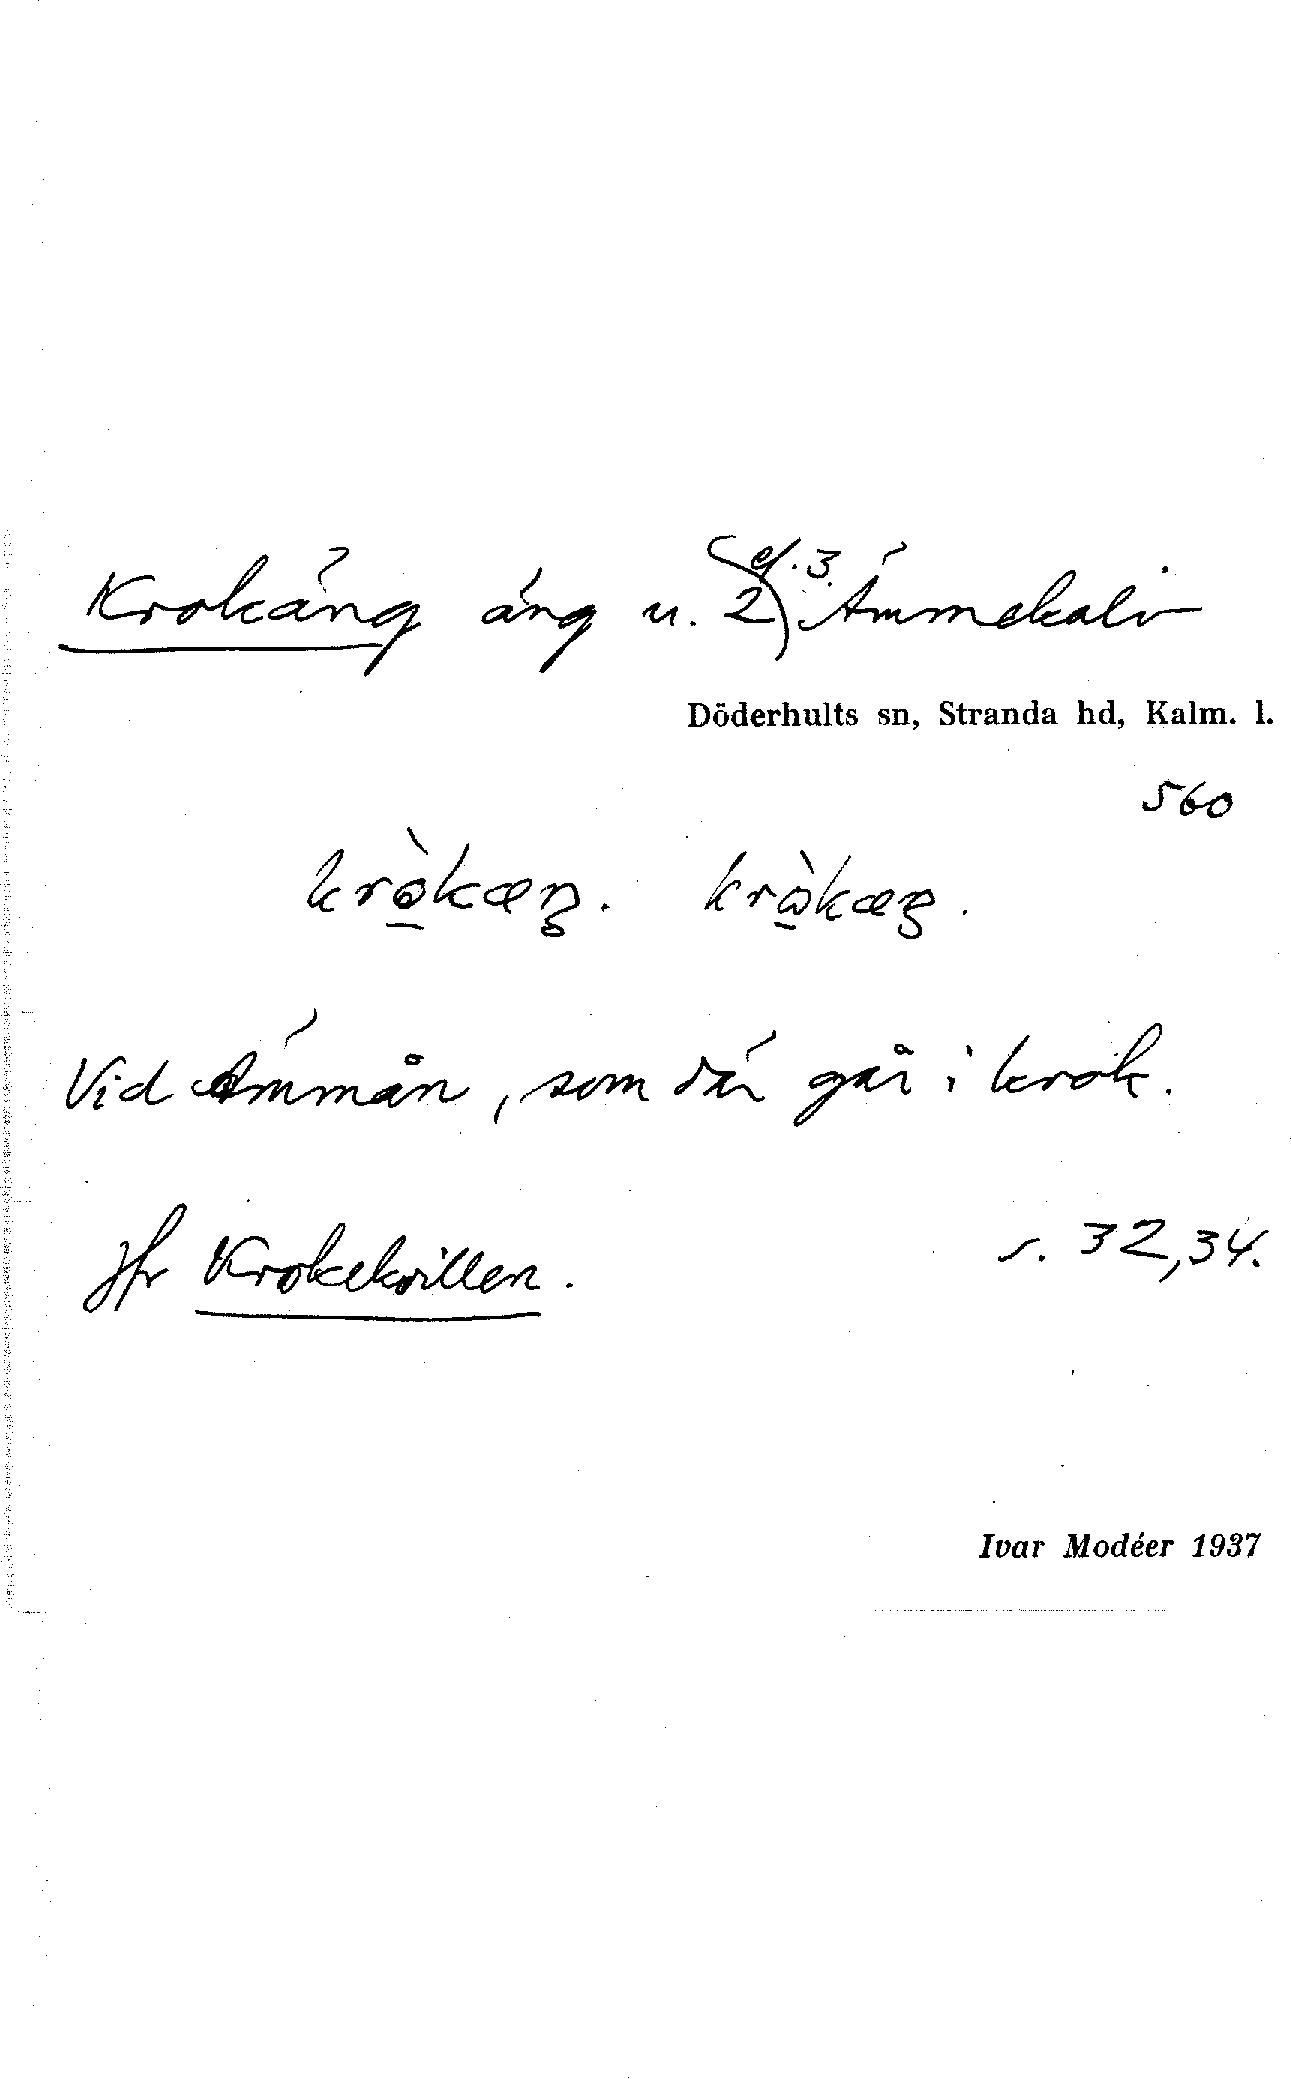 Krokäng äng u. 2) el. 3. Ämmekalv
Döderhults sn, Stranda hd, Kalm. l.
560
krò̠kæŋ. krὼ̠kæŋ.
Vid Ämmån, som där går i krok.
Jfr Krokekvillen. s. 32,34.
Ivar Modéer 1937